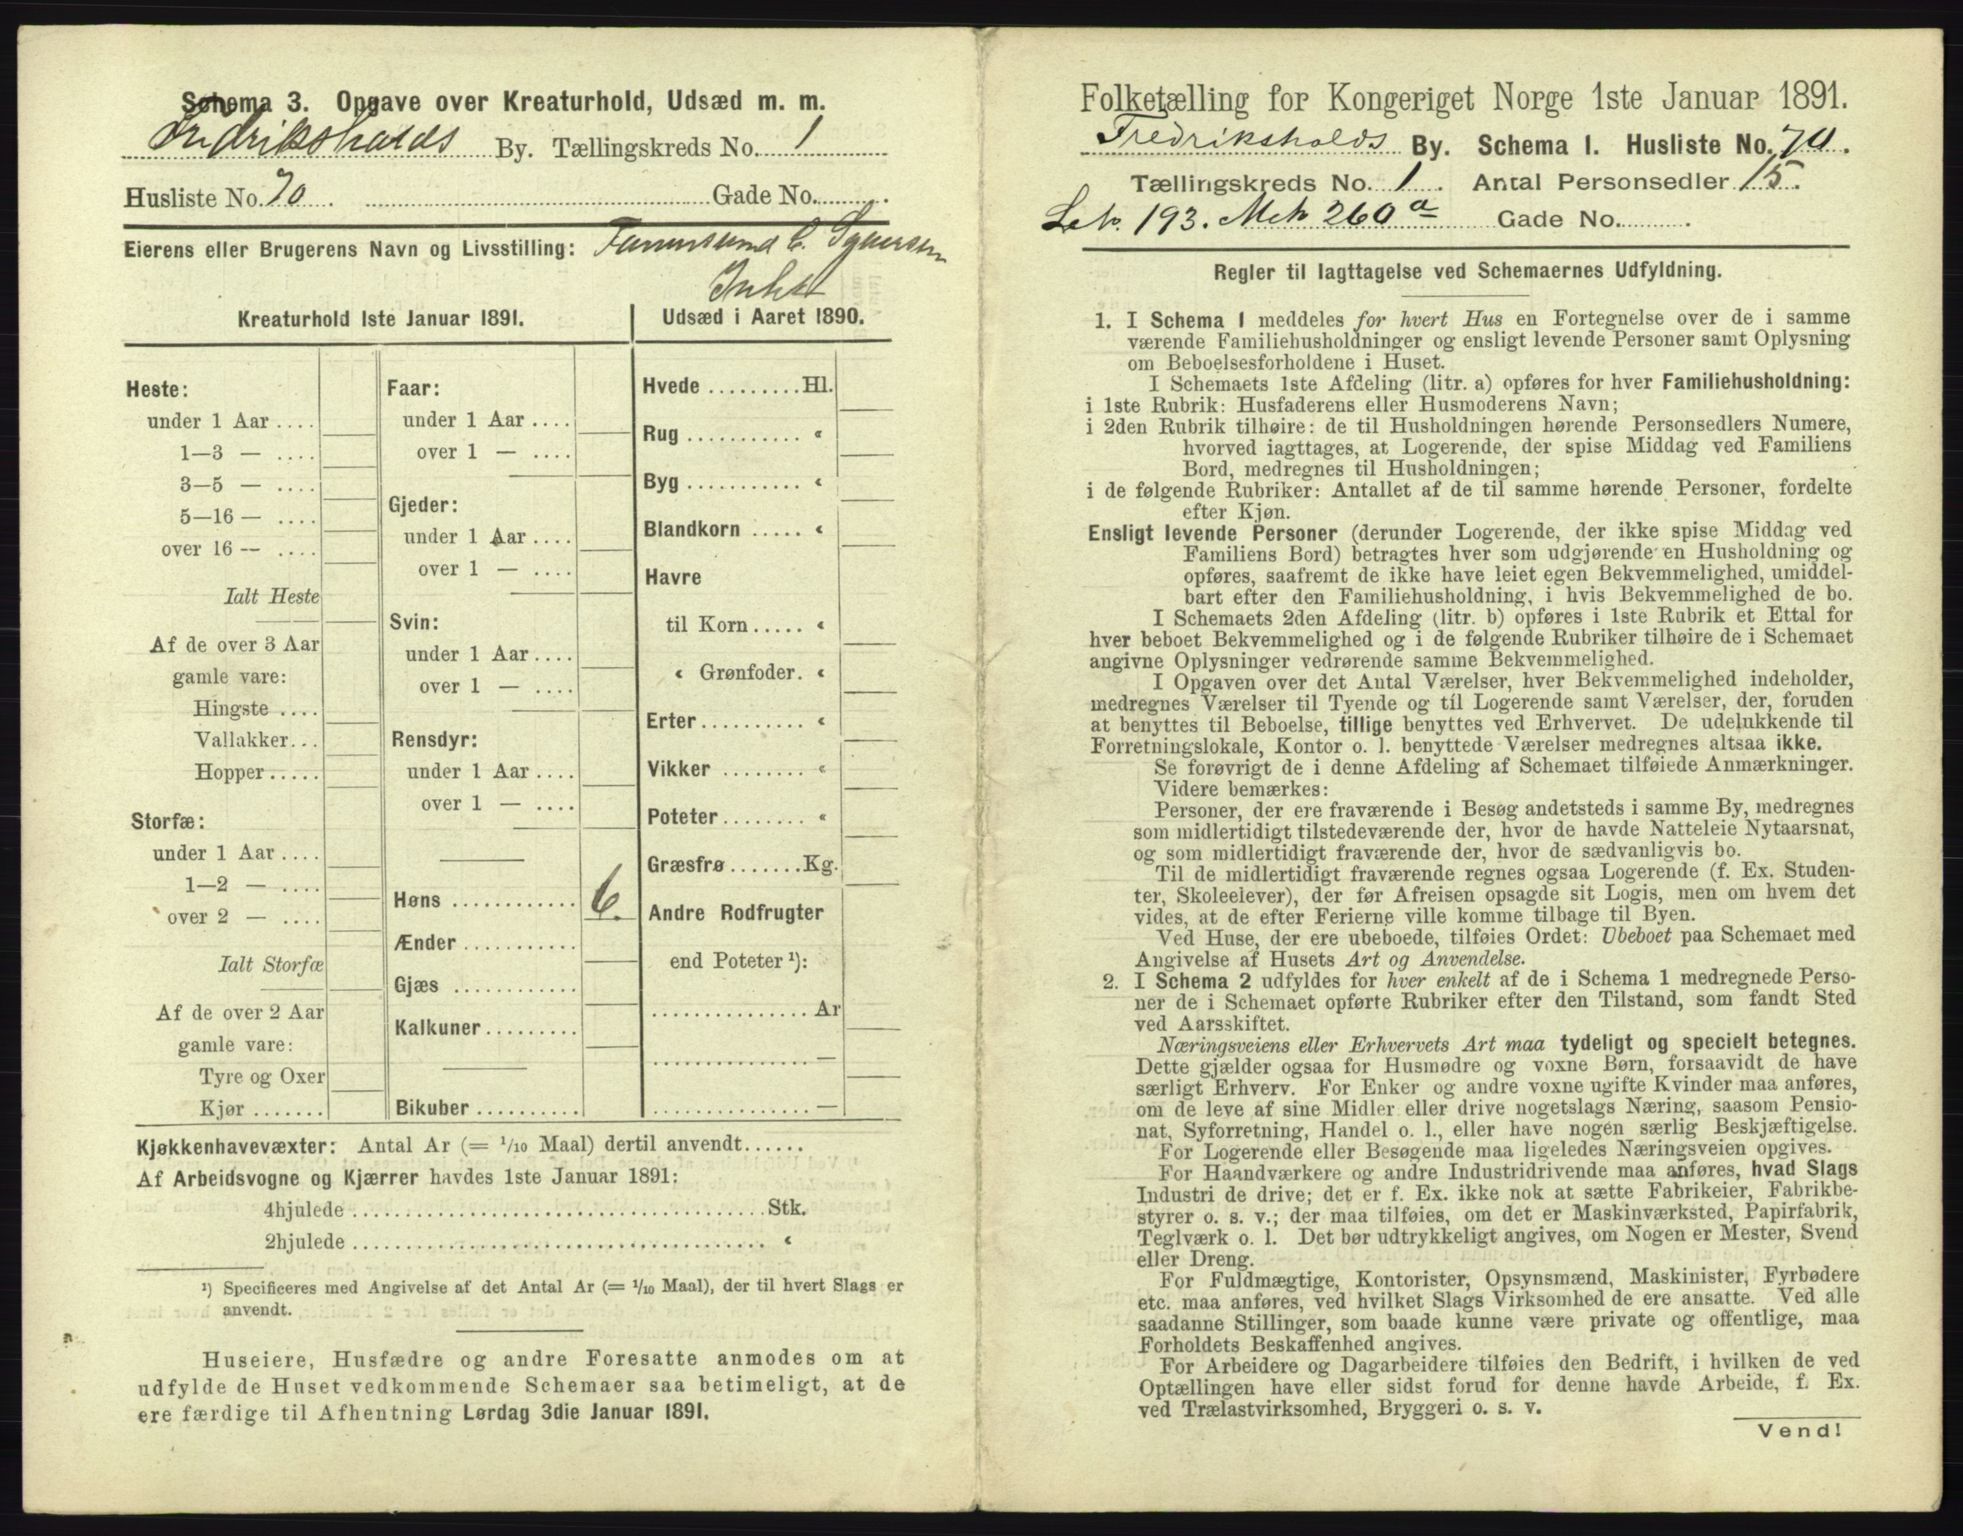 Schema 3. Opgave over Kreaturhold, Udsæd m. m.
Fredrikshalds By. Tællingskreds No. 1
Husliste No. 70 Gade No.
Eierens eller Brugerens Navn og Livsstilling:
Kreaturhold 1ste Januar 1891.
Heste:
under 1 Aar ....
1—3 — ....
3—5 — ....
5—16 — ....
over 16 — ....
Ialt Heste
Af de over 3 Aar
gamle vare:
Hingste ....
Vallakker...
Hopper.....
Storfæ:
under 1 Aar ....
1—2 — ....
over 2 — ....
Ialt Storfæ
Af de over 2 Aar
gamle vare:
Tyre og Oxer
Kjør .......
Faar:
under 1 Aar ....
over 1 — ....
Gjeder:
under 1 Aar ....
over 1 — ....
Svin:
under 1 Aar ....
over 1 — ....
Rensdyr:
under 1 Aar ....
over 1 — ....
Høns ............ 6.
Ænder ............
Gjæs ............
Kalkuner ..........
Bikuber ..........
Udsæd i Aaret 1890.
Hvede .........Hl.
Rug ........... «
Byg ........... «
Blandkorn ..... «
Havre
til Korn..... «
« Grønfoder. «
Erter.......... «
Vikker ........ «
Poteter ........ «
Græsfrø .......Kg.
Andre Rodfrugter
end Poteter ¹):
............... Ar
............... —
............... —
Kjøkkenhavevæxter: Antal Ar (= 1/10 Maal) dertil anvendt......
Af Arbeidsvogne og Kjærrer havdes 1ste Januar 1891:
4hjulede ........................................Stk.
2hjulede ........................................ «
¹) Specificeres med Angivelse af det Antal Ar (= 1/10 Maal), der til hvert Slags er
anvendt.
Huseiere, Husfædre og andre Foresatte anmodes om at
udfylde de Huset vedkommende Schemaer saa betimeligt, at de
ere færdige til Afhentning Lørdag 3die Januar 1891.
Folketælling for Kongeriget Norge 1ste Januar 1891.
Fredrikshalds By. Schema 1. Husliste No. 70.
Tællingskreds No. 1. Antal Personsedler 15.
193. 260 a Gade No.
Regler til Iagttagelse ved Schemaernes Udfyldning.
1. I Schema 1 meddeles for hvert Hus en Fortegnelse over de i samme
værende Familiehusholdninger og ensligt levende Personer samt Oplysning
om Beboelsesforholdene i Huset.
I Schemaets 1ste Afdeling (litr. a) opføres for hver Familiehusholdning:
i 1ste Rubrik: Husfaderens eller Husmoderens Navn;
i 2den Rubrik tilhøire: de til Husholdningen hørende Personsedlers Numere,
hvorved iagttages, at Logerende, der spise Middag ved Familiens
Bord, medregnes til Husholdningen;
i de følgende Rubriker: Antallet af de til samme hørende Personer, fordelte
efter Kjøn.
Ensligt levende Personer (derunder Logerende, der ikke spise Middag ved
Familiens Bord) betragtes hver som udgjørende en Husholdning og
opføres, saafremt de ikke have leiet egen Bekvemmelighed, umiddel-
bart efter den Familiehusholdning, i hvis Bekvemmelighed de bo.
I Schemaets 2den Afdeling (litr. b) opføres i 1ste Rubrik et Ettal for
hver beboet Bekvemmelighed og i de følgende Rubriker tilhøire de i Schemaet
angivne Oplysninger vedrørende samme Bekvemmelighed.
I Opgaven over det Antal Værelser, hver Bekvemmelighed indeholder,
medregnes Værelser til Tyende og til Logerende samt Værelser, der, foruden
at benyttes til Beboelse, tillige benyttes ved Erhvervet. De udelukkende til
Forretningslokale, Kontor o. l. benyttede Værelser medregnes altsaa ikke.
Se forøvrigt de i denne Afdeling af Schemaet tilføiede Anmærkninger.
Videre bemærkes:
Personer, der ere fraværende i Besøg andetsteds i samme By, medregnes
som midlertidigt tilstedeværende der, hvor de havde Natteleie Nytaarsnat,
og som midlertidigt fraværende der, hvor de sædvanligvis bo.
Til de midlertidigt fraværende regnes ogsaa Logerende (f. Ex. Studen-
ter, Skoleelever), der før Afreisen opsagde sit Logis, men om hvem det
vides, at de efter Ferierne ville komme tilbage til Byen.
Ved Huse, der ere ubeboede, tilføies Ordet: Ubeboet paa Schemaet med
Angivelse af Husets Art og Anvendelse.
2. I Schema 2 udfyldes for hver enkelt af de i Schema 1 medregnede Perso-
ner de i Schemaet opførte Rubriker efter den Tilstand, som fandt Sted
ved Aarsskiftet.
Næringsveiens eller Erhvervets Art maa tydeligt og specielt betegnes.
Dette gjælder ogsaa for Husmødre og voxne Børn, forsaavidt de have
særligt Erhverv. For Enker og andre voxne ugifte Kvinder maa anføres,
om de leve af sine Midler eller drive nogetslags Næring, saasom Pensio-
nat, Syforretning, Handel o. l., eller have nogen særlig Beskjæftigelse.
For Logerende eller Besøgende maa ligeledes Næringsveien opgives.
For Haandværkere og andre Industridrivende maa anføres, hvad Slags
Industri de drive; det er f. Ex. ikke nok at sætte Fabrikeier, Fabrikbe-
styrer o. s. v.; der maa tilføies, om det er Maskinværksted, Papirfabrik,
Teglværk o. l. Det bør udtrykkeligt angives, om Nogen er Mester, Svend
eller Dreng.
For Fuldmægtige, Kontorister, Opsynsmænd, Maskinister, Fyrbødere
etc. maa anføres, ved hvilket Slags Virksomhed de ere ansatte. Ved alle
saadanne Stillinger, som baade kunne være private og offentlige, maa
Forholdets Beskaffenhed angives.
For Arbeidere og Dagarbeidere tilføies den Bedrift, i hvilken de ved
Optællingen have eller sidst forud for denne havde Arbeide, f. Ex.
ved Trælastvirksomhed, Bryggeri o. s. v.
Vend!